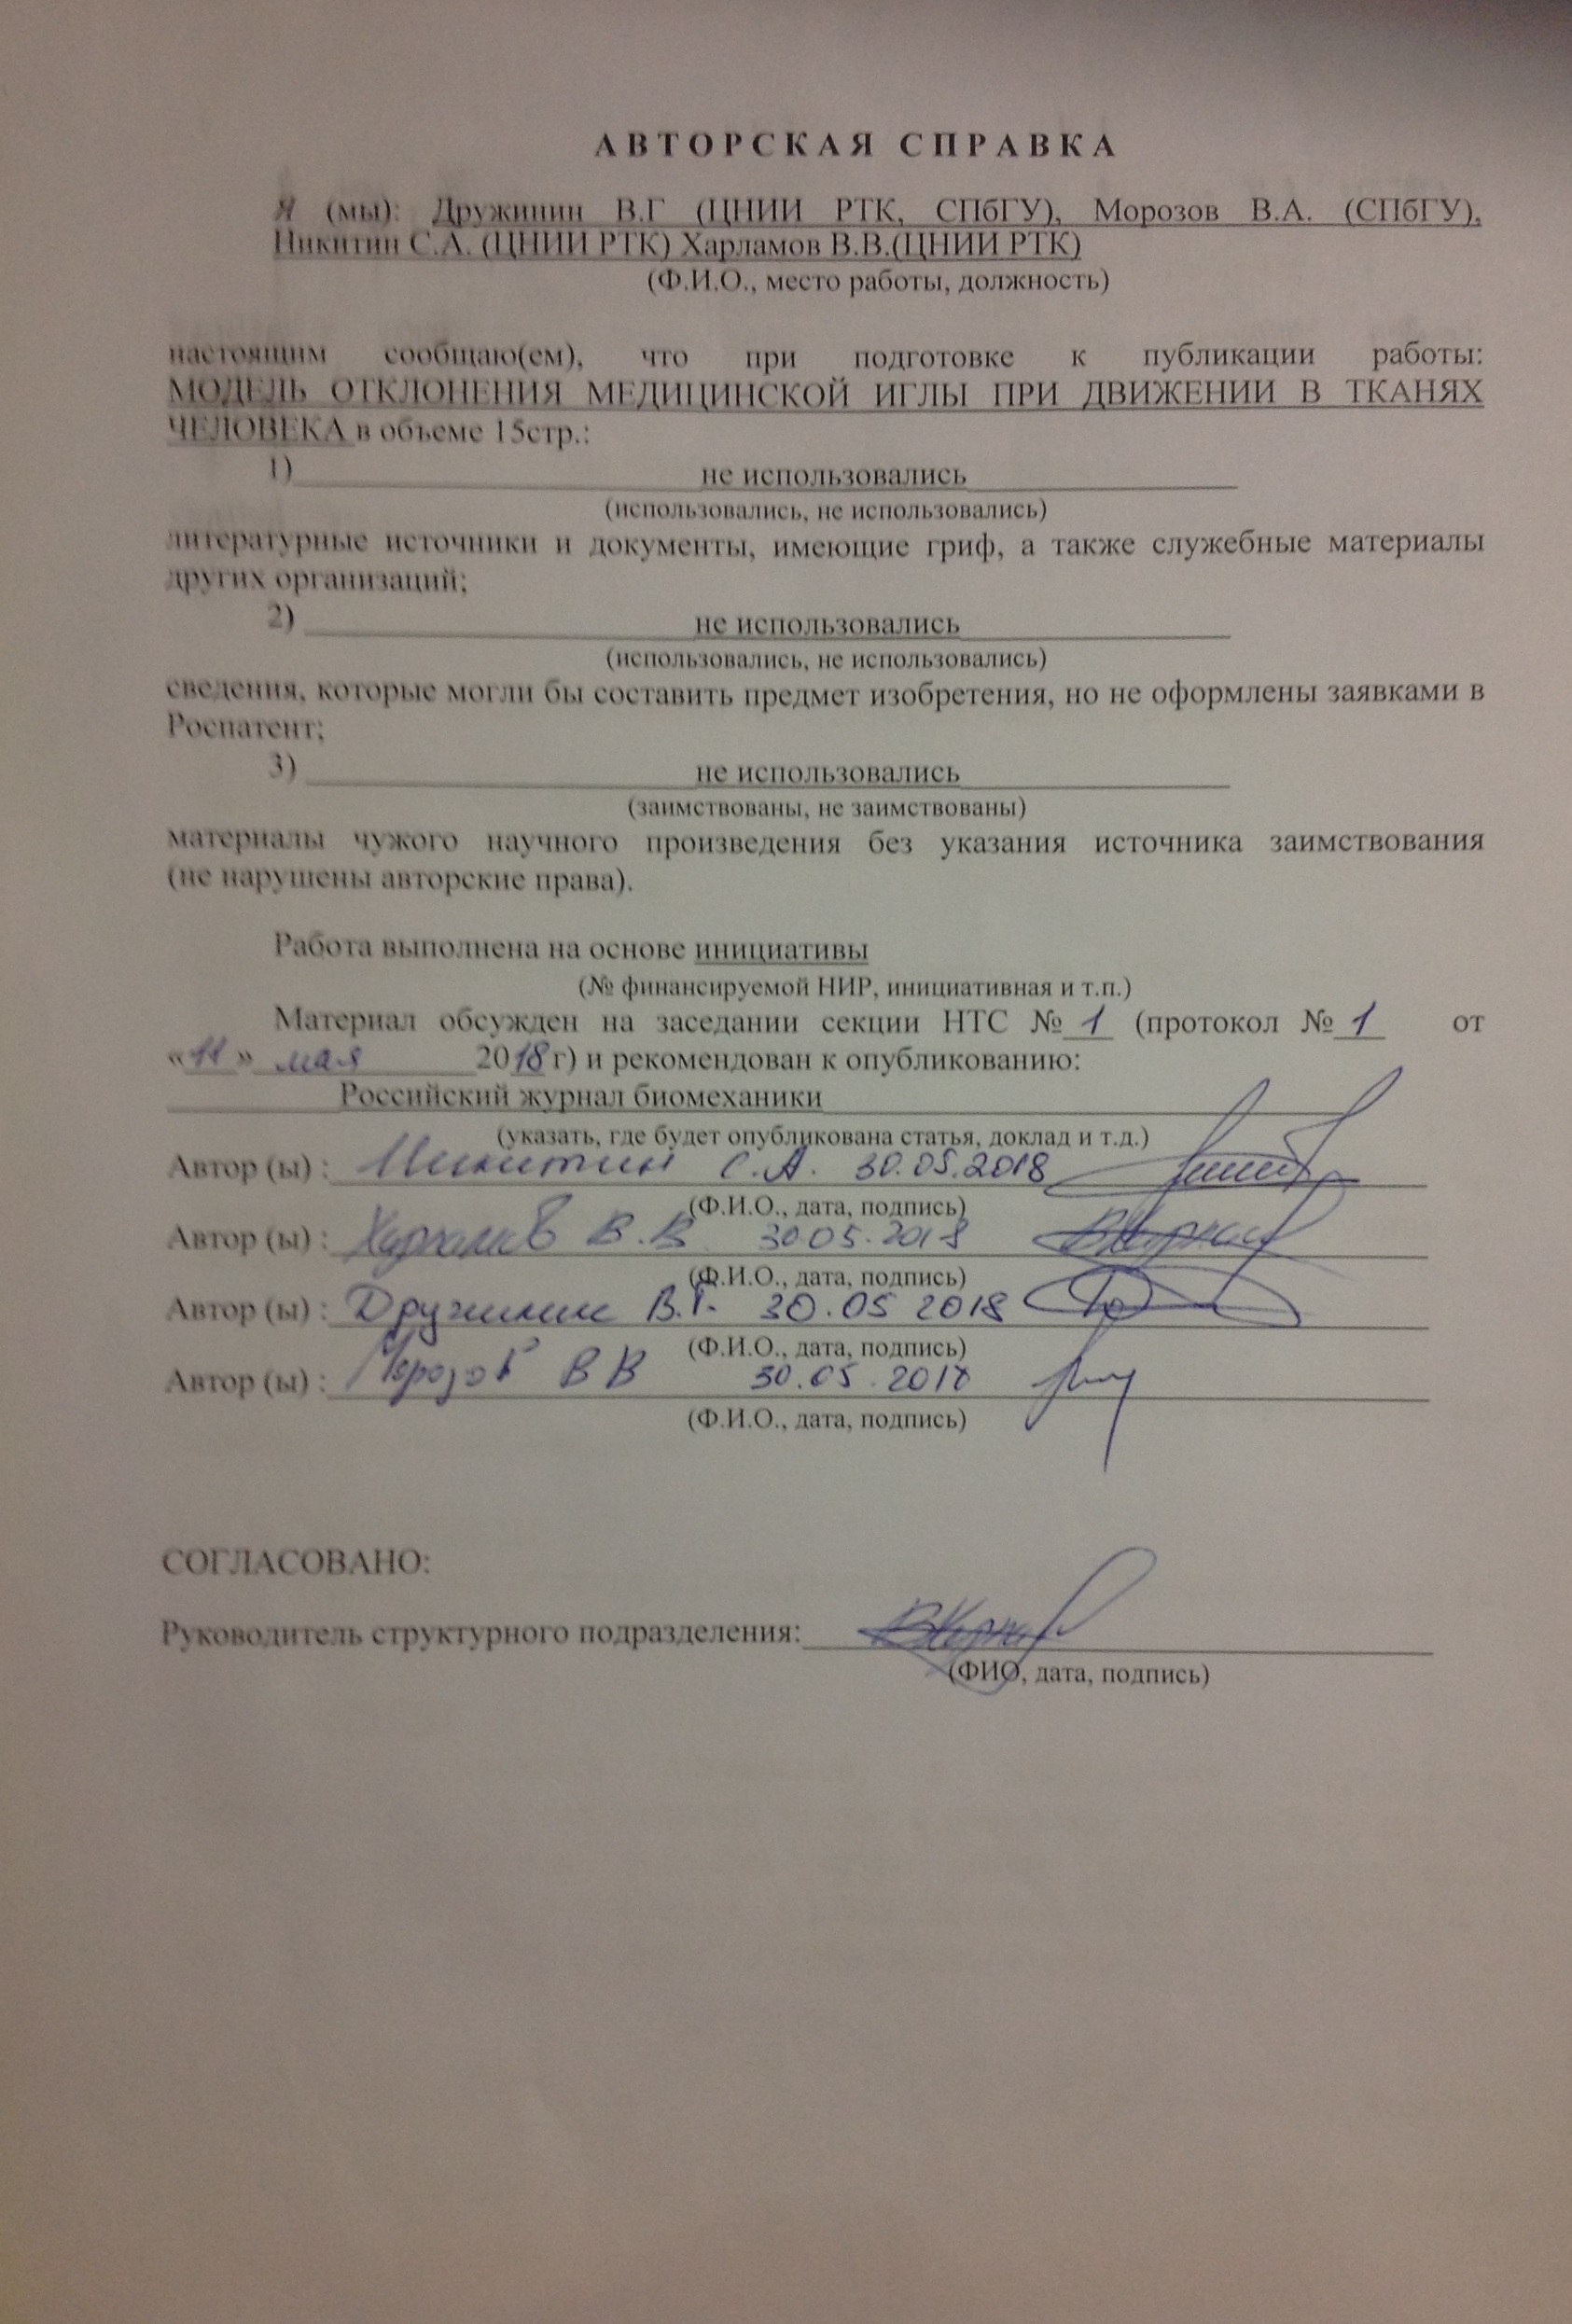 АВТОРСКАЯ СПРАВКА
Я (мы): Дружинин В.Г (ЦНИИ РТК, СПбГУ), Морозов В.А. (СПбГУ),
Никитин С.А. (ЦНИИ РТК) Харламов В.В.(ЦНИИ РТК)
(Ф.И.О., место работы, должность)
настоящим сообщаю(ем), что при подготовке к публикации работы:
МОДЕЛЬ ОТКЛОНЕНИЯ МЕДИЦИНСКОЙ ИГЛЫ ПРИ ДВИЖЕНИИ В ТКАНЯХ
ЧЕЛОВЕКА в объеме 15стр.:
1) не использовались
(использовались, не использовались)
литературные источники и документы, имеющие гриф, а также служебные материалы
других организаций;
2) не использовались
(использовались, не использовались)
сведения, которые могли бы составить предмет изобретения, но не оформлены заявками в
Роспатент;
3) не использовались
(заимствованы, не заимствованы)
материалы чужого научного произведения без указания источника заимствования
(не нарушены авторские права).
Работа выполнена на основе инициативы
(№ финансируемой НИР, инициативная и т.п.)
Материал обсужден на заседании секции НТС № 1 (протокол № 1 от
«11» мая 2018 г) и рекомендован к опубликованию:
Российский журнал биомеханики
(указать, где будет опубликована статья, доклад и т.д.)
Автор (ы) : Никитин С.А. 30.05.2018
(Ф.И.О., дата, подпись)
Автор (ы) : Харламов В.В 30.05.2018
(Ф.И.О., дата, подпись)
Автор (ы) : Дружинин В.Г. 30.05 2018
(Ф.И.О., дата, подпись)
Автор (ы) : Морозов В В 30.05.2018
(Ф.И.О., дата, подпись)
СОГЛАСОВАНО:
Руководитель структурного подразделения:
(ФИО, дата, подпись)